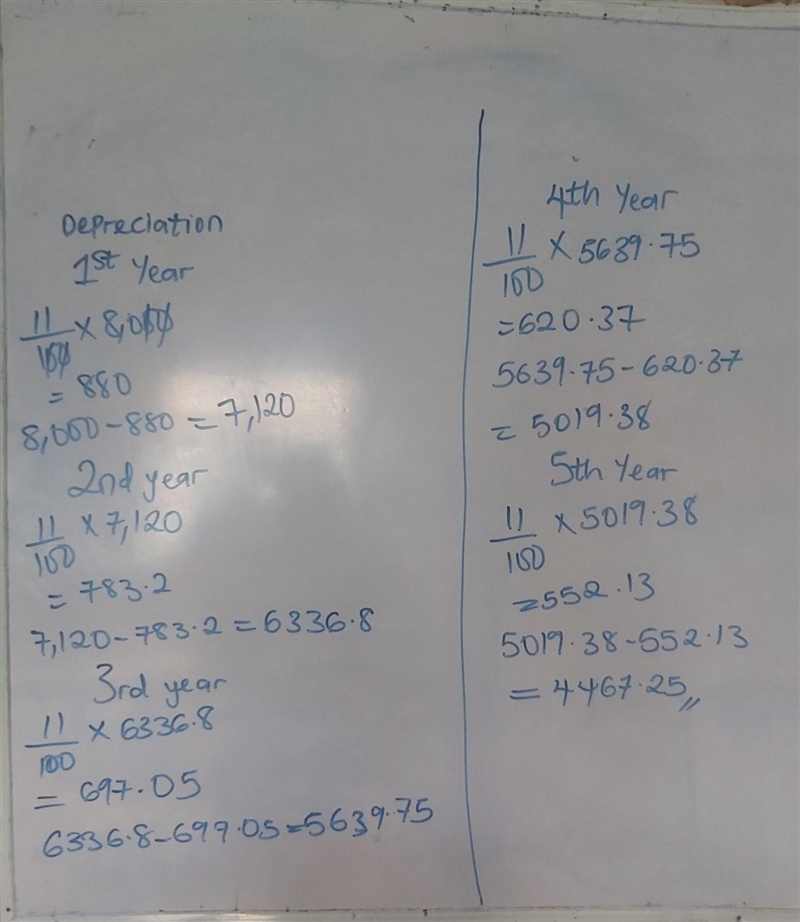 Depreciation
1st Year
11/100 × 8,000
= 880
8,000 - 880 = 7,120
2nd year
11/100 × 7,120
= 783.2
7,120 - 783.2 = 6336.8
3rd year
11/100 × 6336.8
= 697.05
6336.8 - 697.05 = 5639.75
4th Year
11/100 × 5639.75
= 620.37
5639.75 - 620.37
= 5019.38
5th Year
11/100 × 5019.38
= 552.13
5019.38 - 552.13
= 4467.25,,